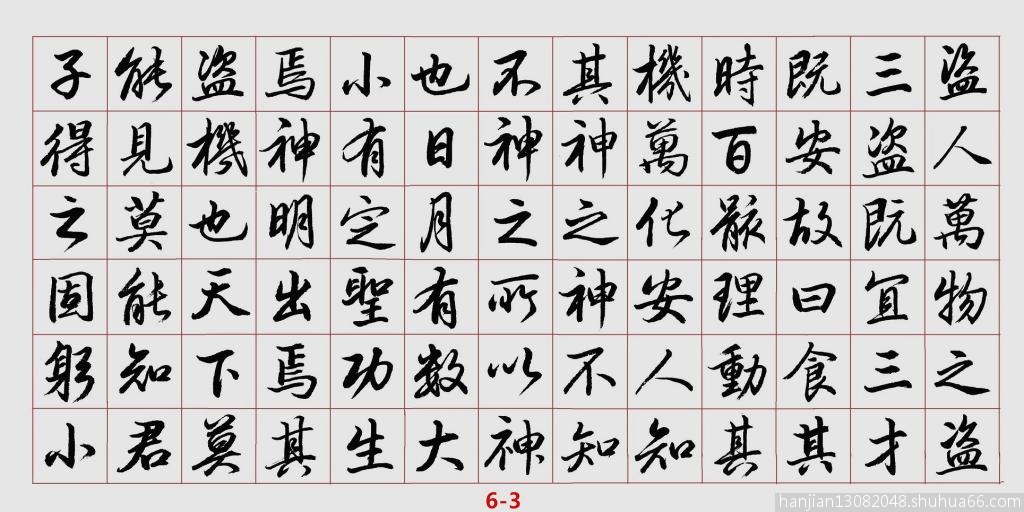 盜人萬物之盜
三盜既宜三才
既安故曰食其
時百骸理動其
機萬化安人知
其神之神不知
不神之所以神
也日月有數大
小有定聖功生
焉神明出焉其
盜機也天下莫
能見莫能知君
子得之固躬小
6-3
hanjian13082048.shuhua66.com